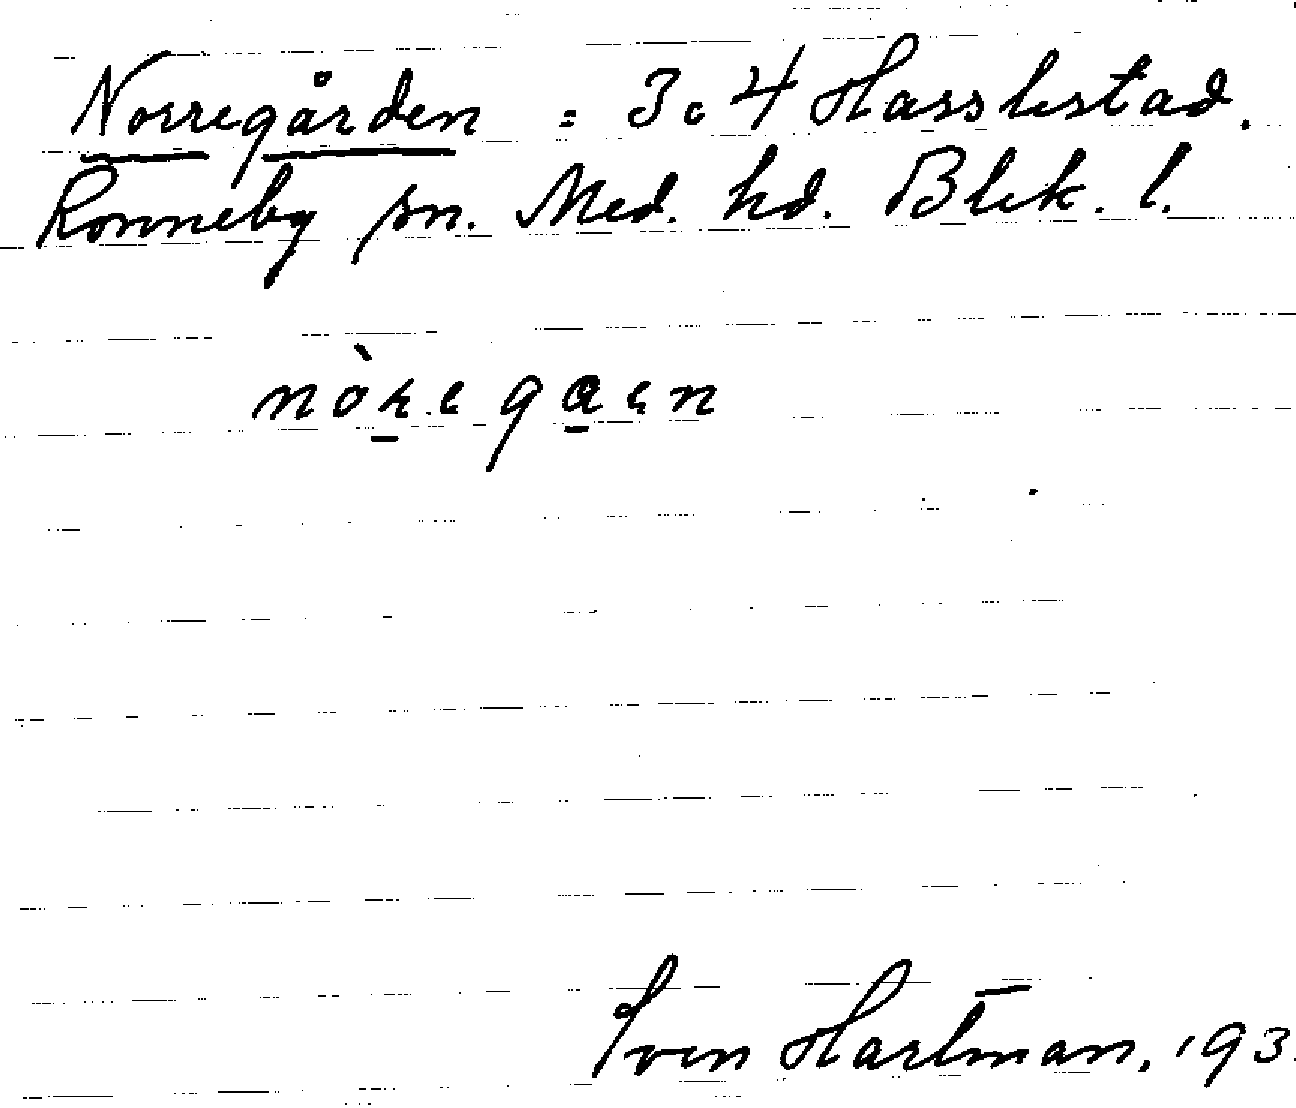 Norregården = 3:4 Hasslestad.
Ronneby sn. Med. hd. Blek. l.
Sven Hartman, 193